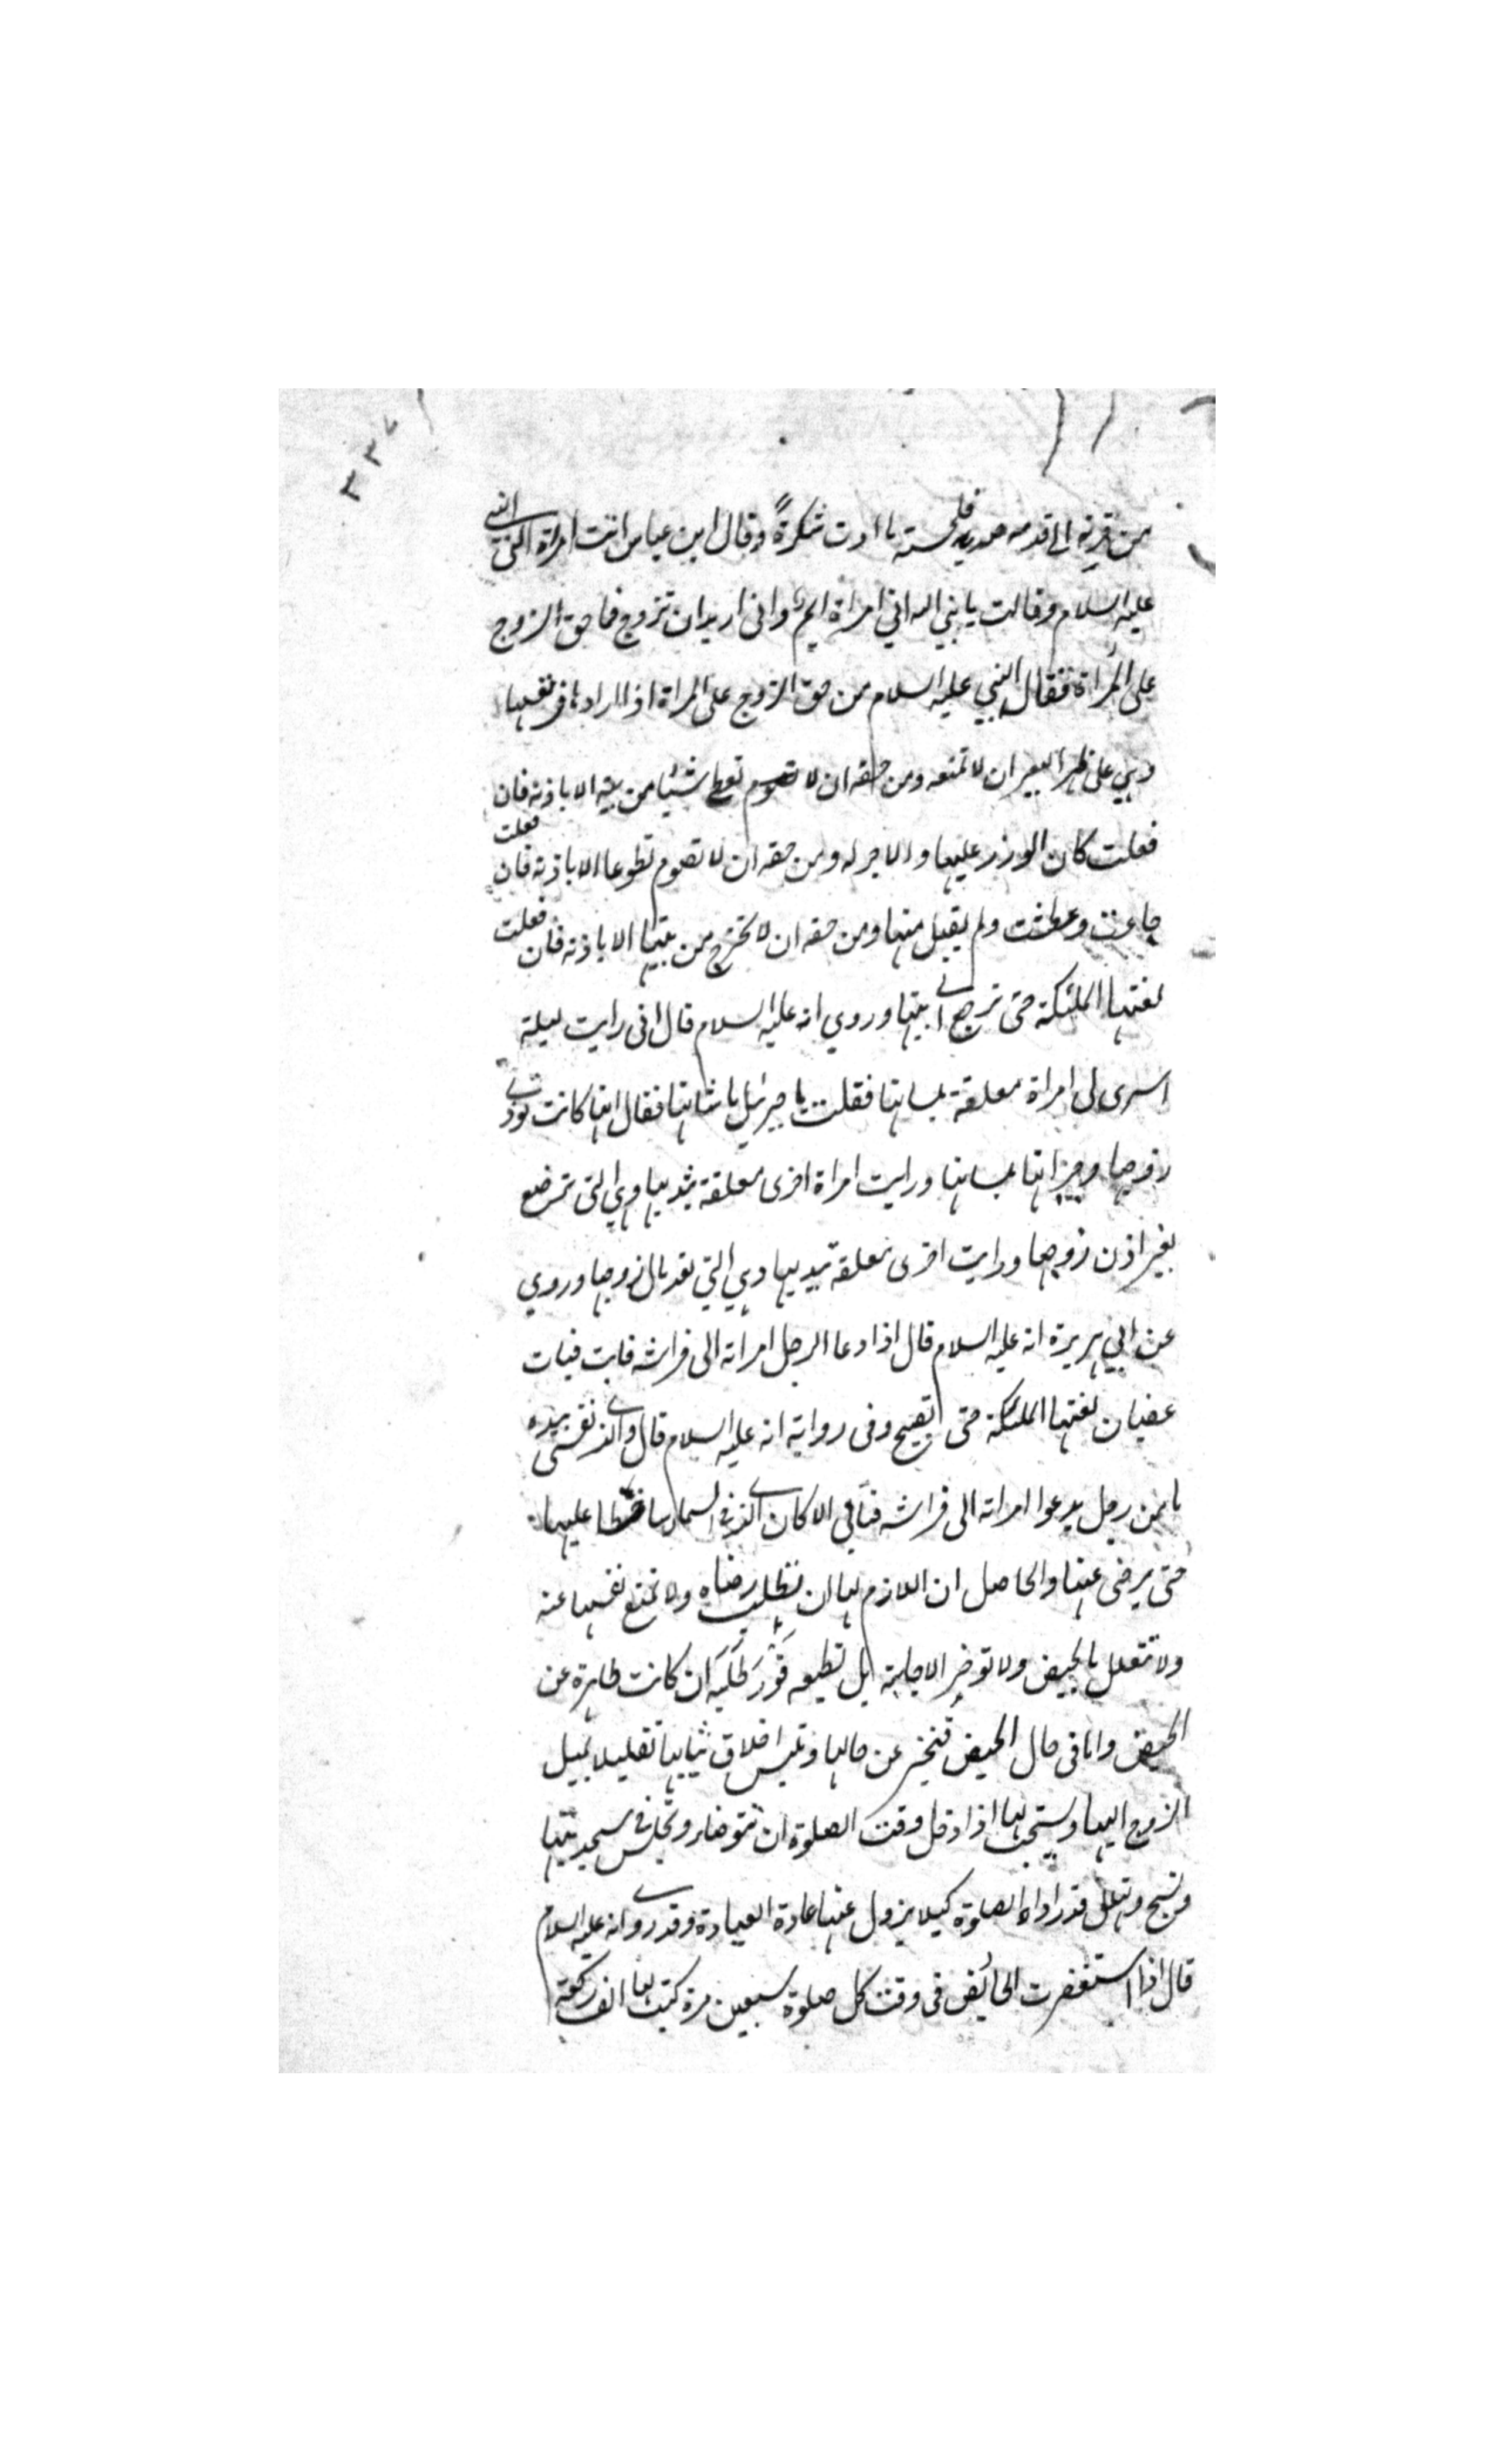 ٣٣٧
من قرنه الى قدمه صديد فلحسته ما ادت شكره وقال ابن عباس اتت امراة النبي
عليه السلام وقالت يا نبي الله اني امراة ايم واني اريد ان تزوج فما حق الزوج
على المراة فقال النبي عليه السلام من حق الزوج على المراة اذا ارادها في نفسها
وهي على ظهر البعير ان لا تمنعه ومن حقه ان لا تعطي شيئا من بيته الا باذنه فان
فعلت كان الوزر عليها والاجر له ومن حقه ان لا تصوم تطوعا الا باذنه فان فعلت
جاعت وعطشت ولم يقبل منها ومن حقه ان لا تخرج من بيتها الا باذنه فان فعلت
لعنتها الملئكة حتى ترجع الى بيتها وروي انه عليه السلام قال اني رايت ليلة
اسرى لى امراة معلقة بلسانها فقلت يا جبرئيل ما شانها فقال انها كانت توذي
زوجها وجيرانها بلسانها ورايت امراة اخرى معلقة بثدييها وهي التي ترضع
بغير اذن زوجها ورايت اخرى معلقة بيديها وهي التي مال زوجها وروي
عن ابي هريرة انه عليه السلام قال اذا دعا الرجل امراته الى فراشه فابت فبات
غضبان لعنتها الملئكة حتى تصبح وفى رواية انه عليه السلام قال والذي نفسي بيده
ما من رجل يدعوا امراته الى فراشه فتابي الا كان الذي في السماء ساخطا عليها
حتى يرضى عنها والحاصل ان اللازم لها ان تطلب رضاه ولا تمنع نفسها عنه
ولا تتعلل بالحيض ولا توخر الاجابة بل تطيعه فور طلبه ان كانت طاهرة عن
الحيض واما فى حال الحيض فتخبر عن حالها وتلبس اخلاق ثيابها تقليلا لميل
الزوج اليها ويستحب لها اذا دخل وقت الصلوة ان تتوضاء وتجلس في مسجد بيتها
وتسبح وتهلل قدر اداء الصلوة كيلا يزول عنها عادة العبادة وقد روى انه عليه السلام
قال اذا استغفرت الحائض فى وقت كل صلوة سبعين مرة كتبت لها الف ركعة